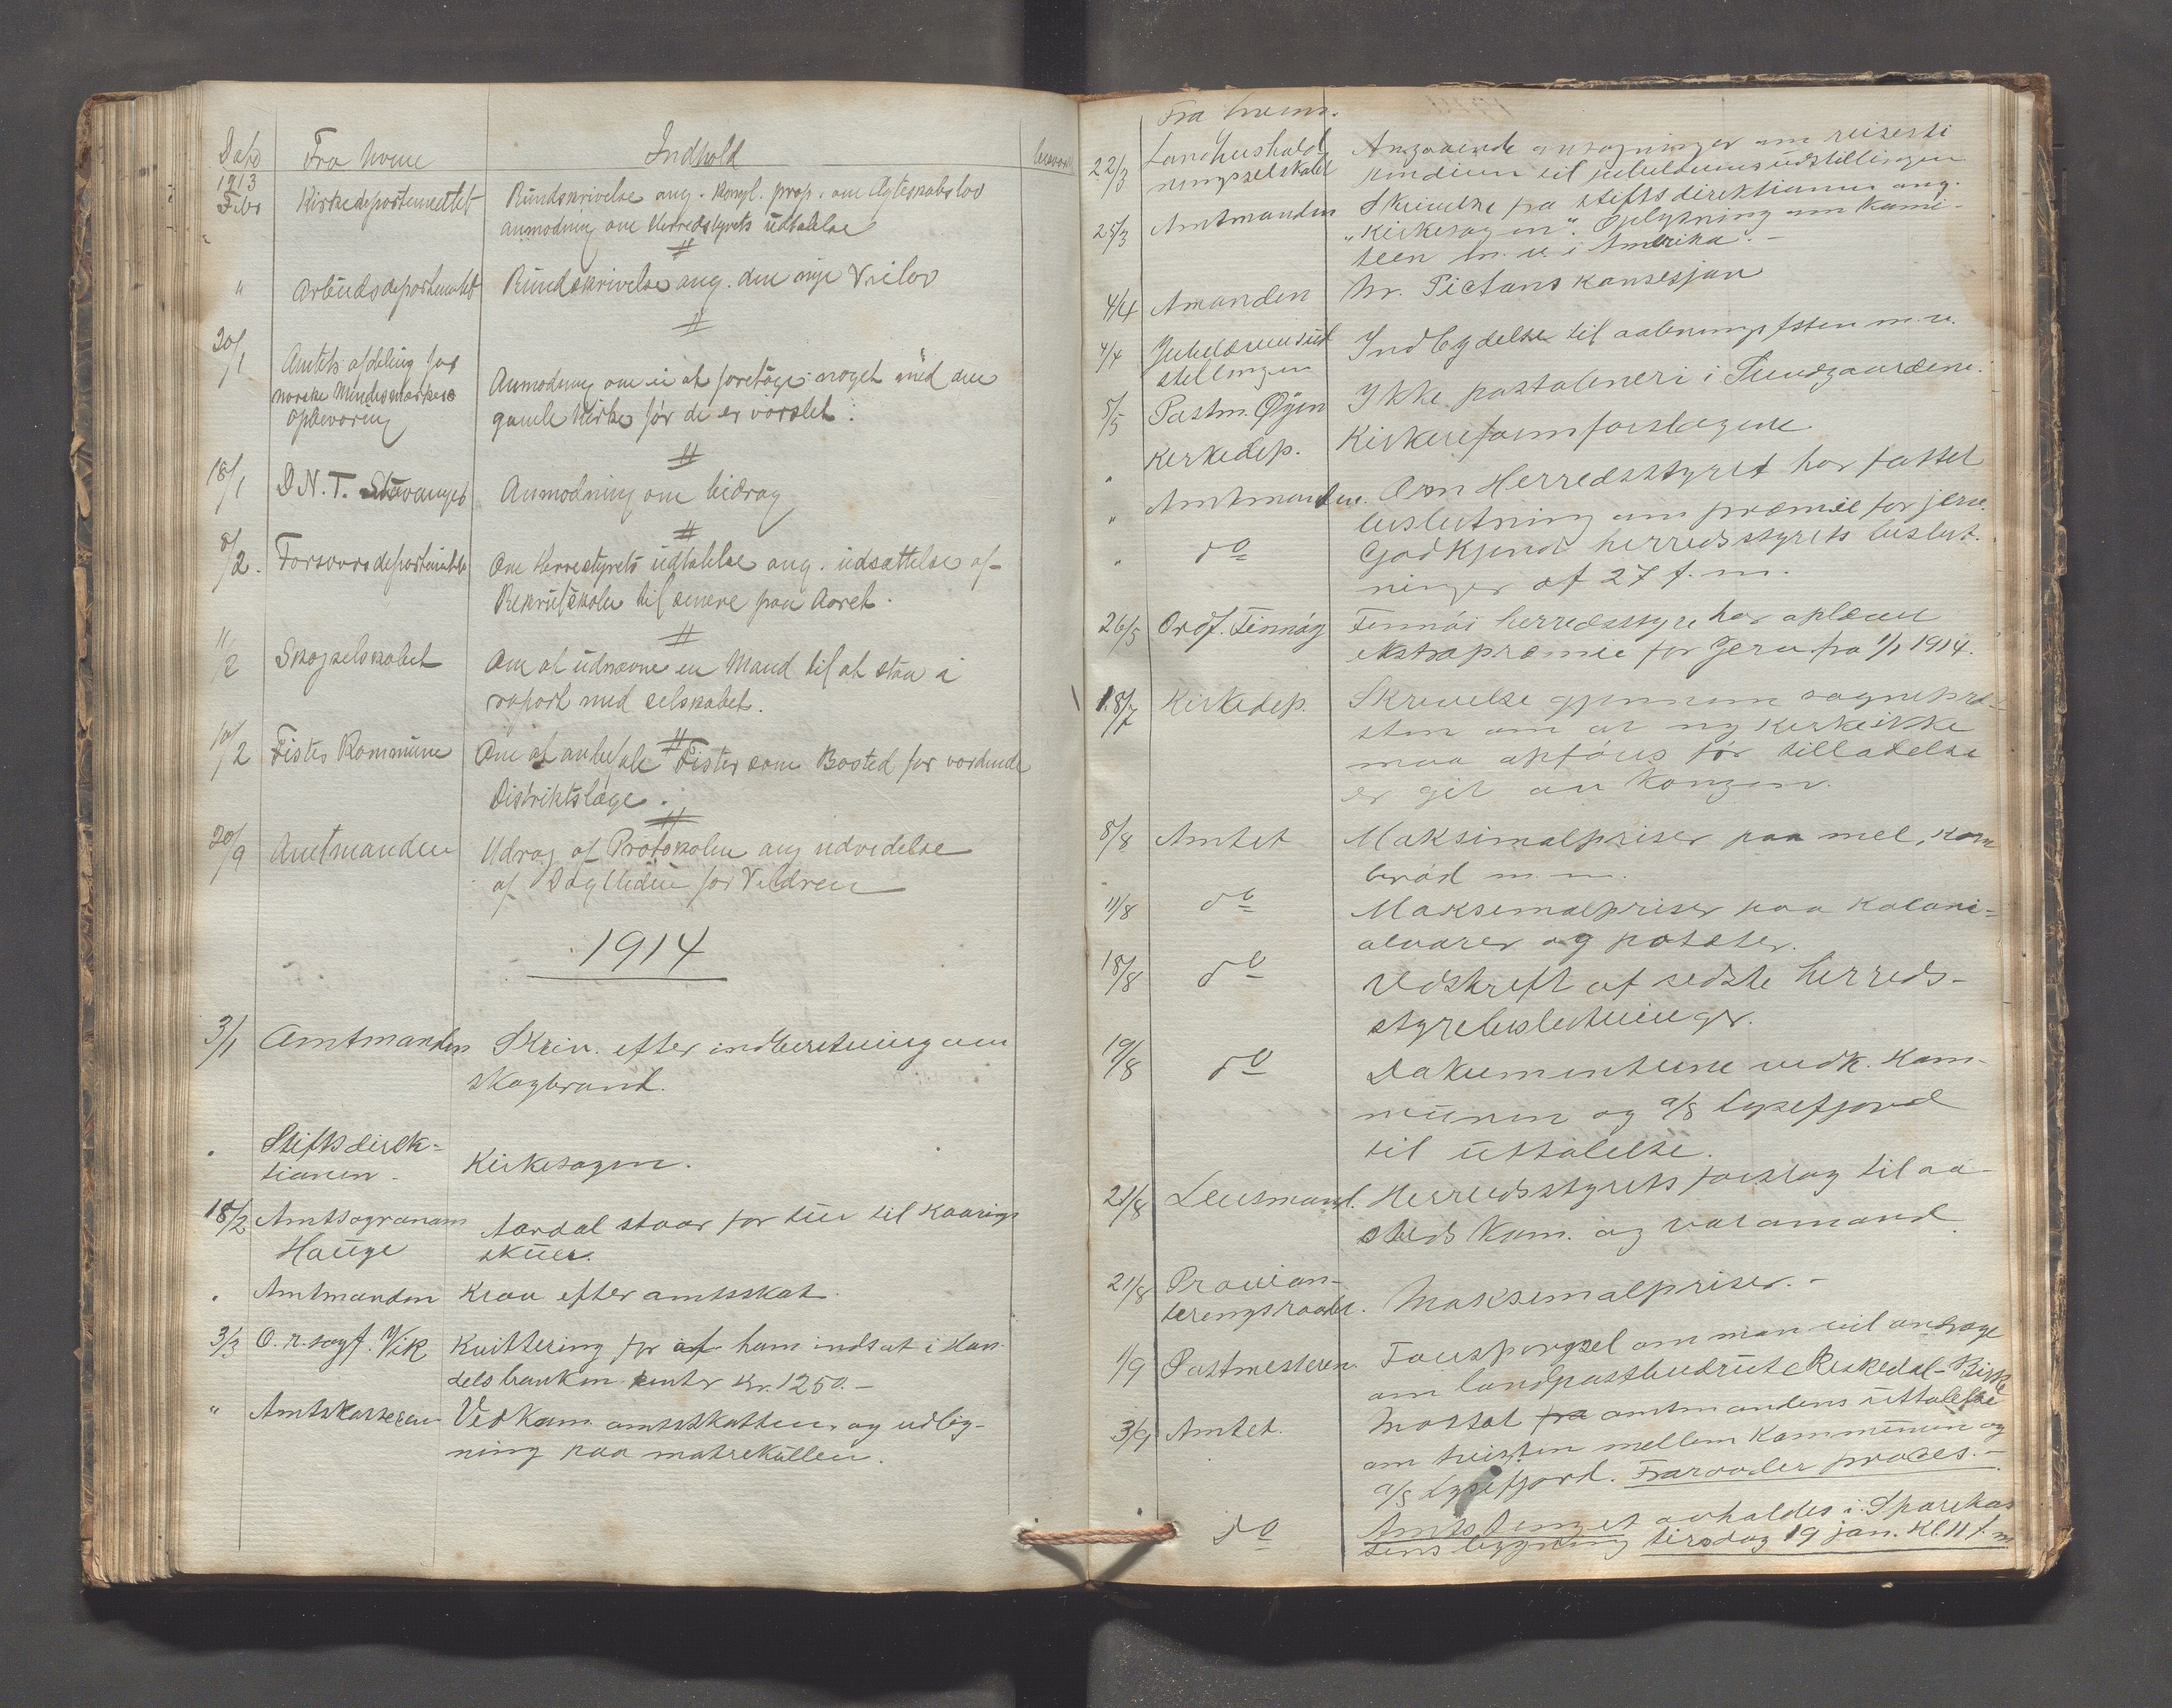 Dato Fra hvem Indhold besvaret
1913
Febr Kirkedepartementet Rundskrivelse ang. kongl. prop. om Ægteskabslov
anmodning om Herredstyrets udtalelse
"
Arbeidsdepartementet Rundskrivelse ang. den nye Veilov
20/1
Amtets afdeling for
norske Mindesmærkers
opbevaring
Anmodning om ei at foretage noget med den
gamle Kirke før de er varslet.
18/1 D.N.T. Stavanger Anmodning om bidrag
8/2. Forsvarsdepartementet Om Herredstyrets udtalelse ang. udsættelse af
Rekrutskolen til senere paa Aaret.
11/2 Skogselskabet Om at udnævne en Mand til at staa i
raport med selskabet.
10/2 Fister Kommune Om at anbefale Fister som Bosted for vordende
Distriktslæge.
20/9 Amtmanden Udrag af Protokolen ang udvidelse
af for Vildren
1914
3/1 Amtmanden Skriv. efter indberetning om
skogbrand.
" Stiftsdirek-
tionen - Kirkesagen.
18/2 Amtsagronom
Hauge
Aardal staar for tur til Kaarings
skuer.
" Amtmanden Krav efter amtsskat.
3/3 O.r.sagf. Vik Kvittering for af ham indsat i Han-
delsbanken renter Kr. 1250.-
" Amtskasseren Vedkom. amtsskatten og udlig-
ning paa matrekullen.
Fra hvem.
22/3 Landhushold
ningsselskabet
Angaaende ansøgninger om reisesti
pendium til jubilæumsudstillingen
25/3 Amtmanden Skrivelse fra stiftsdirektionen ang.
"Kirkesagen". Oplysning om Komi-
teen m. v. i Amerika. -
4/4 Amanden Mr. Pictons konsesjon
4/4 Jubilæumsud
stillingen
Indbydelse til aabningsfesten m. v.
5/5 Postm. Øyen Ikke postaabneri i Sundgaardene.
" Kirkedep. Kirkereformforslagene
" Amtmanden. Om Herredsstyret har fattet
beslutning om præmie for jerv.
" do Godkjend herredsstyrets beslut-
ninger af 27 f.m.
26/5 Ordf. Finnøy Finnøi herredsstyre har oplæv
ekstrapræmie for Jerv fra 1/1 1914.
18/7 Kirkedep. Skrivelse gjennem sognepre-
sten om at ny kirke ikke
maa opføres før tilladelse
er git av kongen.
8/8 Amtet Maksimalpriser paa mel, korn
brød m. m.
11/8 do Maksemalpriser paa koloni-
alvarer og poteter.
18/8 do Udskrift af sidste herreds-
styrebeslutninger.
19/8 do Dokumenterne vedk. kom-
munen og a/s Lysefjord
til uttalelse.
21/8 Lensmand. Herredsstyrets forslag til aa-
steds kom. og varamand.
21/8 Provian-
teringsraadet. Maksemalpriser. -
1/9 Postmesteren. Forespørgsel om man vil andrage
om landpostbudrute Riskedal-Bjørke
3/9 Amtet. Mottat fra amtmandens uttalelse
om tvisten mellem kommunen og
a/s Lysefjord. Fraraader proces.-
" do Amtstinget avholdes i Sparekas
sens bygning tirsdag 19 jan. Kl. 11 f.m